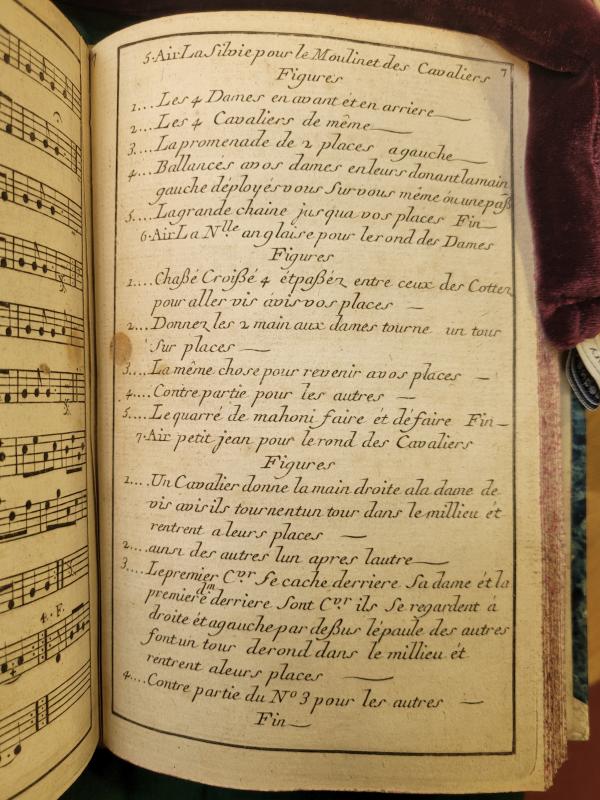 7
5. Air La Silvie pour le Moulinet des Cavaliers
Figures
1... Les 4 Dames en avant ét en arriere
2... Les 4 Cavaliers de même
3.... La promenade de 2 places a gauche
4.... Ballancés avos dames en leurs donant la main
gauche déployés vous Sur vous même óu une paſs
5.... La grande chaine jusqua vos places Fin
6. Air La Nlle anglaise pour le rond des Dames
Figures
1.... Chaßé Croißé 4 ét paßéz entre ceux des Cottez
pour alles vis ávis vos places
2... Donnez les 2 main aux dames tourne un tour
Sur places
3.... La même chose pour revenir avos places
4.... Contre partie pour les autres
5.... Le quarré de mahoni faire ét défaire Fin
7. Air petit jean pour le rond des Cavaliers
Figures
1.... Un Cavalier donne la main droite ala dame de
vis avis ils tournent un tour dans le millieu ét
rentrent a leurs places
2.... ausi des autres lun apres lautre
3.... Le premier Cver Se cache derriere Sa dame ét la
premiere dm derriere Sont Cver ils Se regardent á
droite ét agauche par deßus lépaule des autres
font un tour de rond dans le millieu ét
rentrent aleurs places
4.... Contre partie du No 3 pour les autres
Fin
4. F.